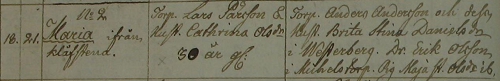 No 2
18. 21. Maria ifrån
kläfstena.
Torp. Lars Pärsson &
Hust. Cathrina Olsdr
30 år gl:
Torp. Anders Andersson och dess
Hust. Brita Stina Danielsdr
i Westerberg. Dr. Erik Olsson
i Michelstorp. Pig. Maja St. Olsdr ib.